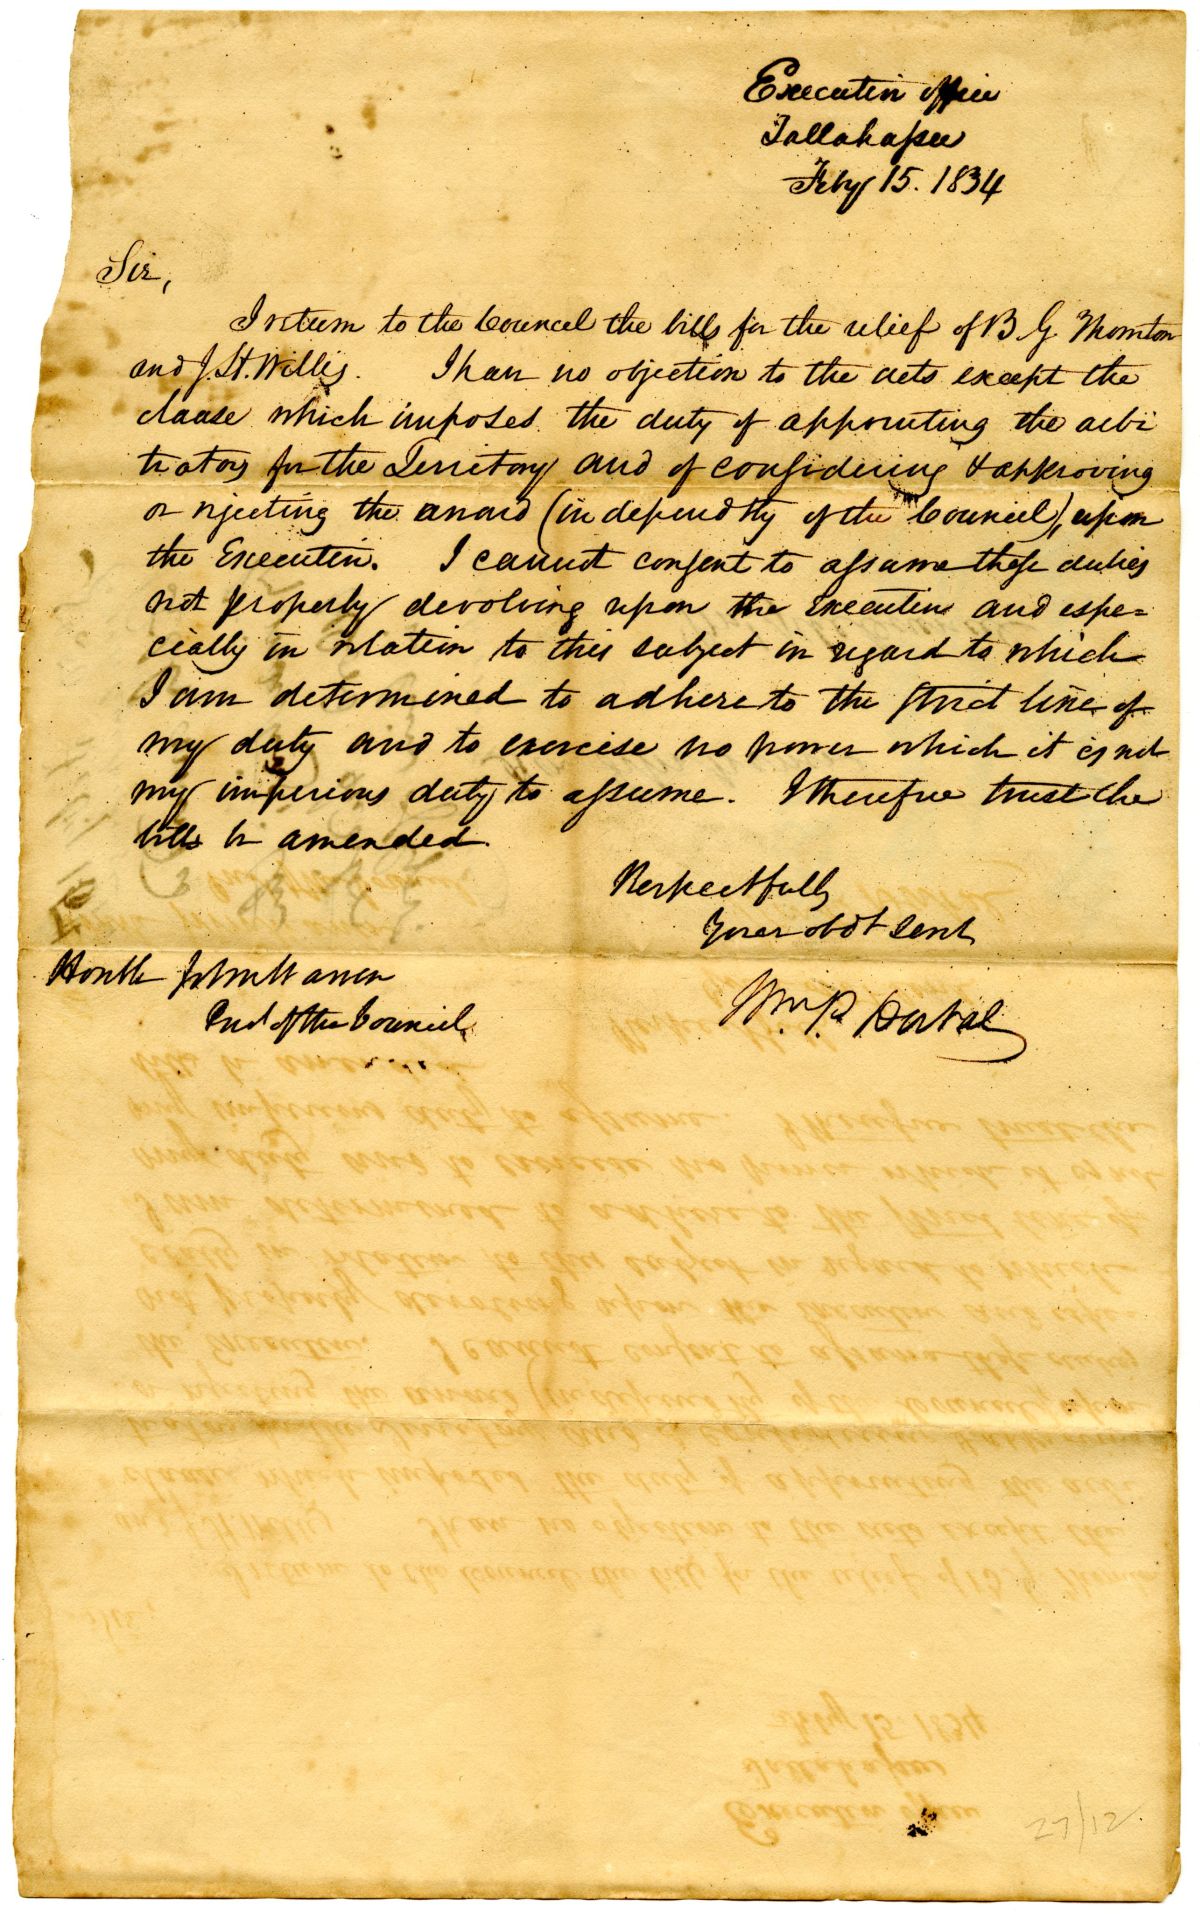 Executive office
Tallahassee
Feby 15. 1834
Sir,
I return to the Council the bills for the relief of B. G. Thornton
and J. H. Willis. I have no objection to the acts except the
clause which imposes the duty of appointing the arbi
trators for the Territory and of considering & approving
or rejecting the award (independtly of the Council), upon
the Executive. I cannot consent to assume these duties
not properly devolving upon the Executive and espe=
cially in relation to this subject in regard to which
I am determined to adhere to the strict line of
my duty and to exercise no power which it is not
my imperious duty to assume. I therefore trust the
bills be amended.
Respectfully
Your obdt Servt
Wm. P. Duval
Honble John Warren
Prest of the Council
27/12